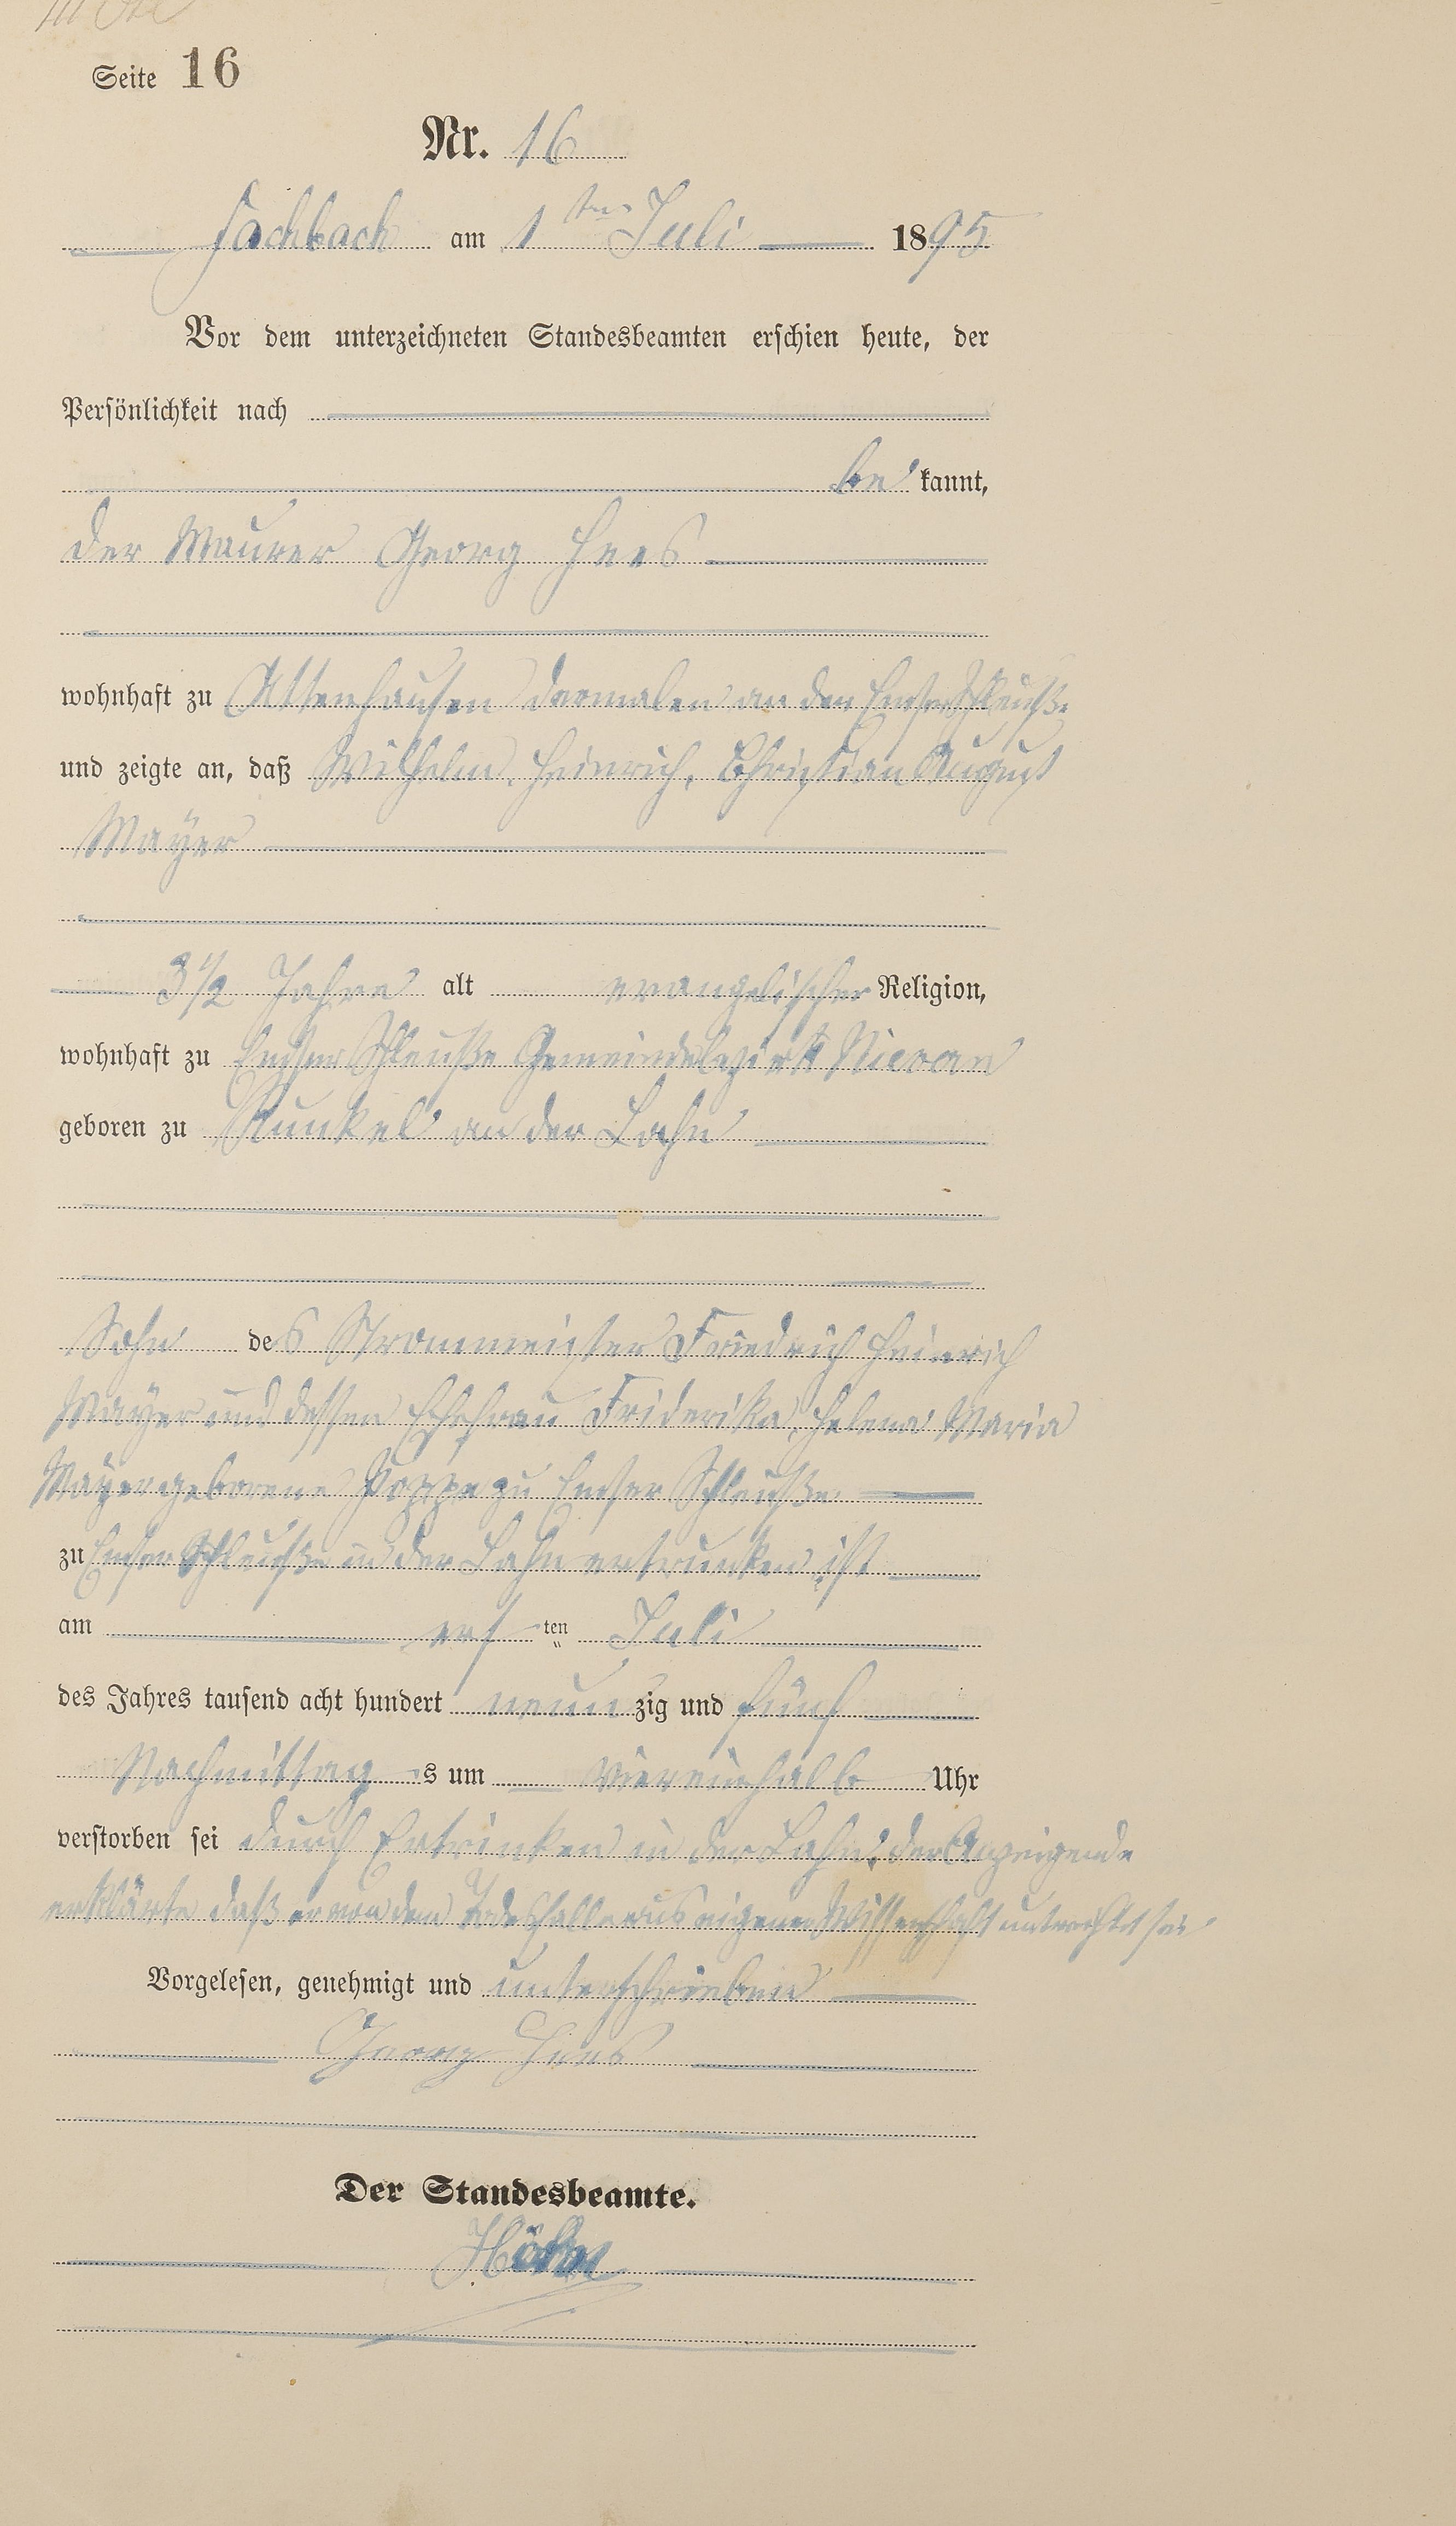 Seite 16
Nr. 16
Fachbach am 1ten Juli 1895
Vor dem unterzeichneten Standesbeamten erschien heute, der
Persönlichkeit nach
be kannt,
der Maurer Georg Hees
wohnhaft zu Attenhausen dermalen an der Emser Schleuße
und zeigte an, daß Wilhelm, Heinrich, Christian August
Mayer
3 1/2 Jahre alt evangelischer Religion,
wohnhaft zu Emser Schleuße Gemeindebezirk Nievern
geboren zu Runkel an der Lahn
Sohn des Strommeister Friedrich Heinrich
Mayer und dessen Ehefrau Friderika, Helena Maria
Mayer geborene Poppe zu Emser Schleuße
zu Emser Schleuße in der Lahn ertrunken ist
am ersten Juli
des Jahres tausend acht hundert neunzig und fünf
Nachmittags um viereinhalb Uhr
verstorben sei durch Ertrinken in der Lahn, der Anzeigende
erklärte daß er von dem Todesfalle aus eigener Wissenschaft unterrichtet sei
Vorgelesen, genehmigt und unterschrieben
Georg Hees
Der Standesbeamte.